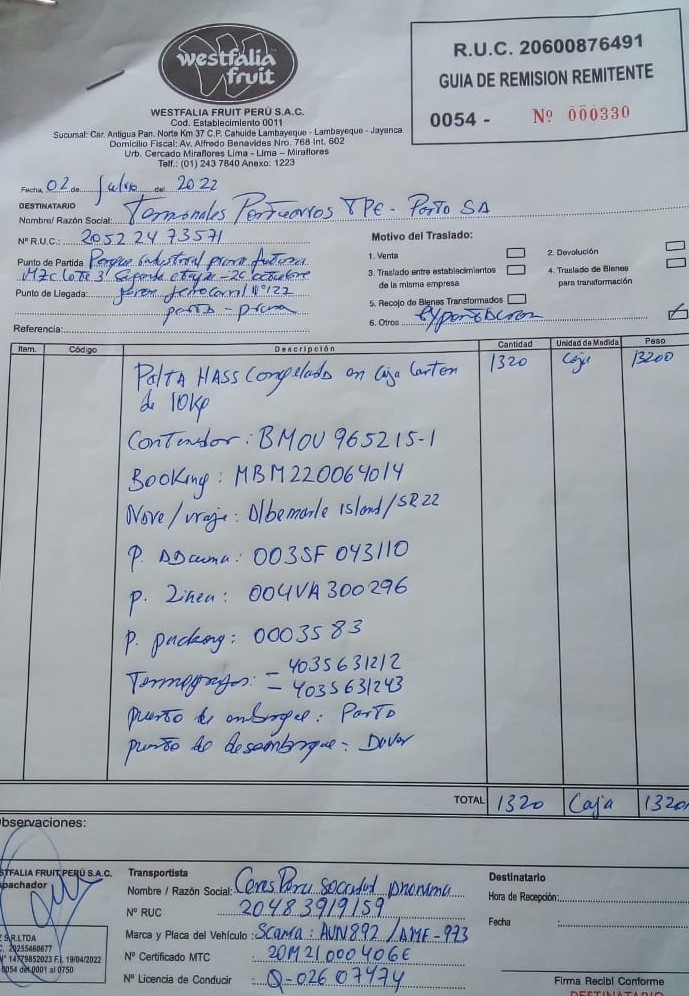 westfalia
fruit
R.U.C. 20600876491
GUIA DE REMISION REMITENTE
0054 - Nº 000330
WESTFALIA FRUIT PERÚ S.A.C.
Cod. Establecimiento 0011
Sucursal: Car. Antigua Pan. Norte Km 37 C.P. Cahuide Lambayeque - Lambayeque - Jayanca
Domicilio Fiscal: Av. Alfredo Benavides Nro. 768 Int. 602
Urb. Cercado Miraflores Lima - Lima – Miraflores
Telf.: (01) 243 7640 Anexo: 1223
Fecha, 02 de Julio del 2022
DESTINATARIO
Nombre/ Razón Social: Terminales Portuarios TPE - Paita SA
Nº R.U.C.: 20522473571
Motivo del Traslado:
1. Venta
2. Devolución
3. Traslado entre establecimientos
de la misma empresa
4. Traslado de Bienes
para transformación
5. Recojo de Bienes Transformados
6. Otros exportacion
Punto de Partida Parque industrial piura futura
MZc Lote 3 Segunda etapa - 26 octubre
Punto de Llegada: ferrocarril Nº 127
paita - piura
Referencia:
Item. Código Descripción Cantidad Unidad de Medida Peso
PalTA HASS Congelado en Caja Carton 1320 Caja 13200
de 10Kg
Contenedor: BMOU 965215-1
Booking: MBM220064014
Nave/viaje: Albemarle Island/SR22
P. Aduana: 003SF 043110
P. Linea: 004VA300296
P. packing: 0003583
Termografos: - 4035631212
- 4035631243
puerto de embarque: Paita
puerto de desembarque: Dover
TOTAL 1320 Caja 1320
Observaciones:
STFALIA FRUIT PERÚ S.A.C.
pachador
Transportista
Nombre / Razón Social: Ceres Peru sociedad anonima
Nº RUC 20483919159
Marca y Placa del Vehículo: Scania: AUN892 / AMF-973
Nº Certificado MTC 20M21000406E
Nº Licencia de Conducir Q-02607474
Destinatario
Hora de Recepción:
Fecha
Firma Recibí Conforme
DESTINATARIO
S.R.LTDA
C. 20255460677
Nº 14779852023 F.I. 19/04/2022
0054 del 0001 al 0750